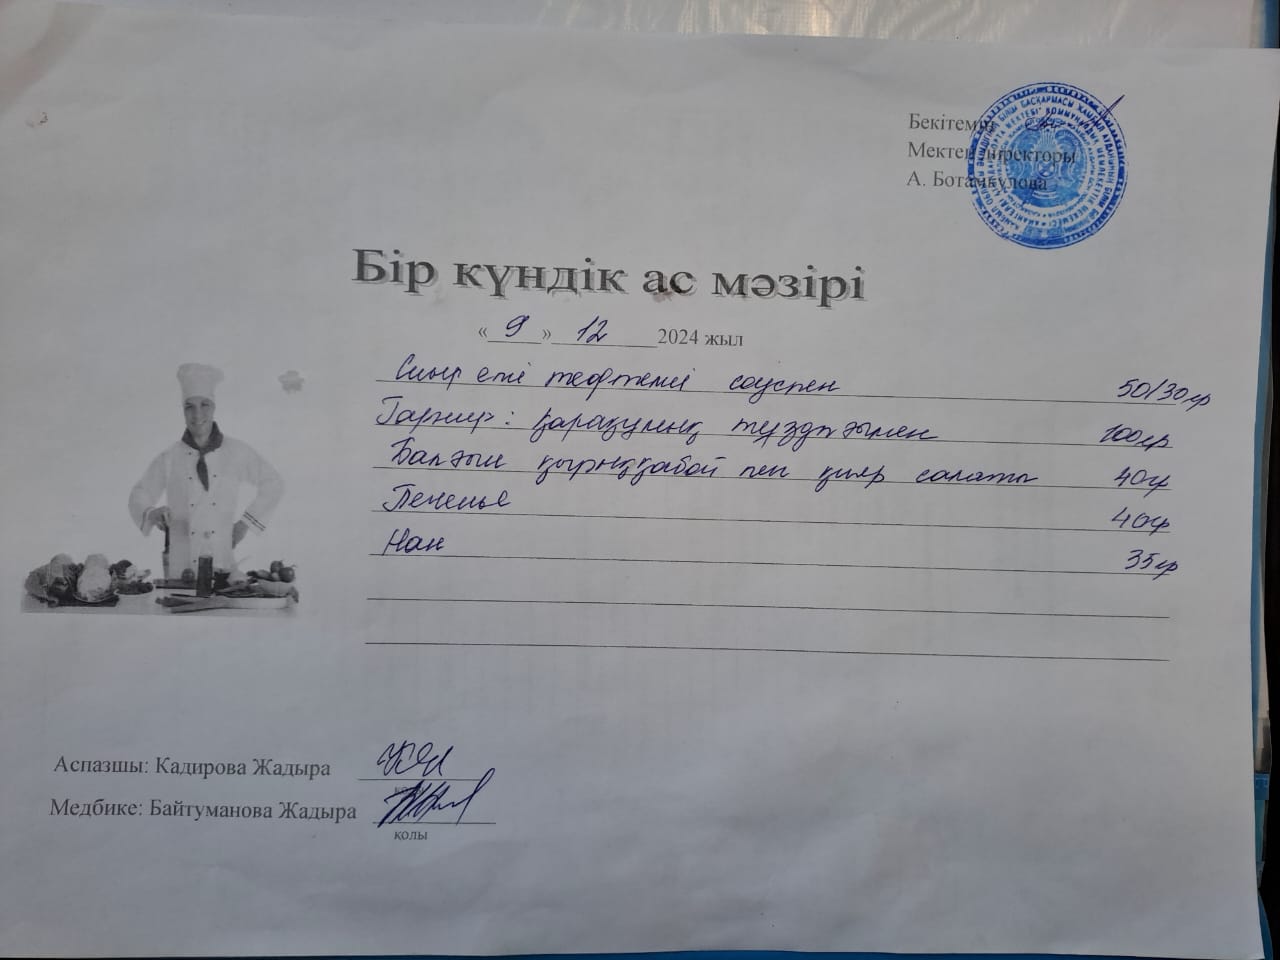 Бекітемін
Мектеп директоры
А. Ботамкулова
Бір күндік ас мәзірі
« 9 » 12 2024 жыл
Сиыр еті тефтелі соуспен 50/30гр
Гарнир: қарақұмық тұздығымен 100гр
Балғын қырыққабат пен қияр салаты 40гр
Печенье 40гр
Нан 35гр
Аспазшы: Кадирова Жадыра
Медбике: Байтуманова Жадыра
қолы